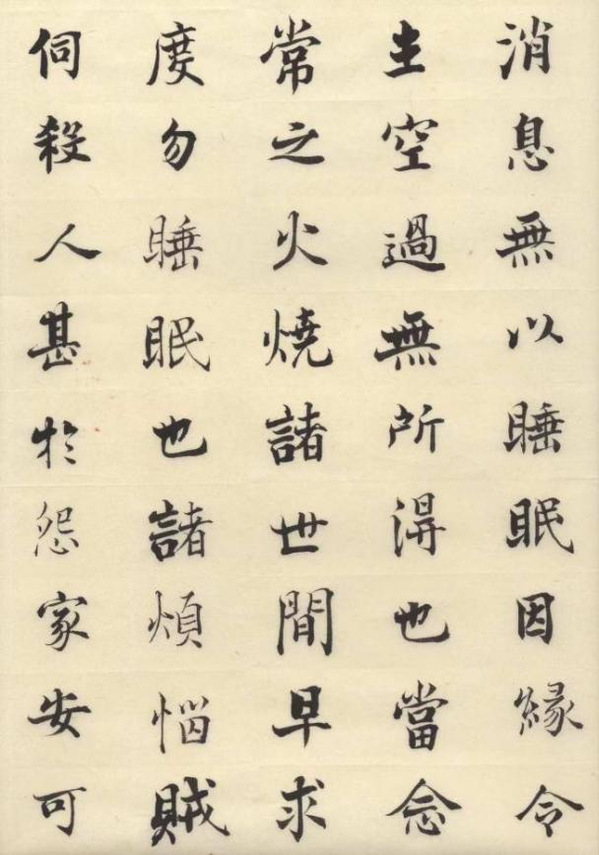 消息無以睡眠因緣令
生空過無所得也當念
常之火燒諸世間早求
度勿睡眠也諸煩惱賊
伺殺人甚於怨家安可